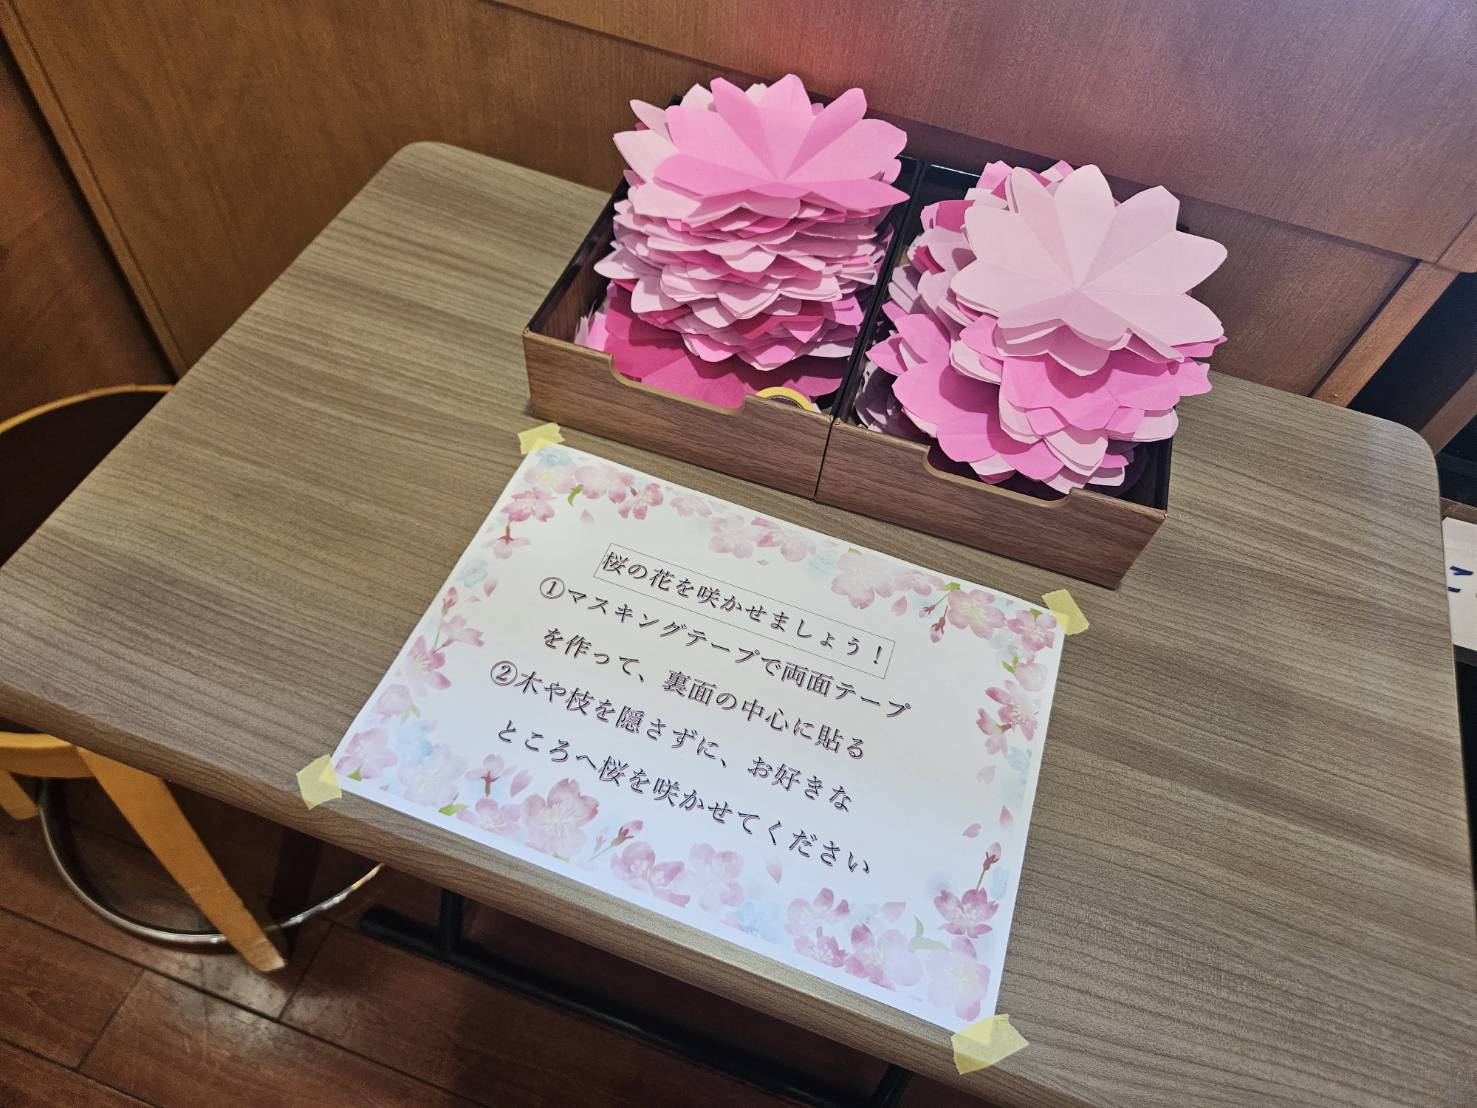 桜の花を咲かせましょう！
①マスキングテープで両面テープ
を作って、裏面の中心に貼る
②木や枝を隠さずに、お好きな
ところへ桜を咲かせてください